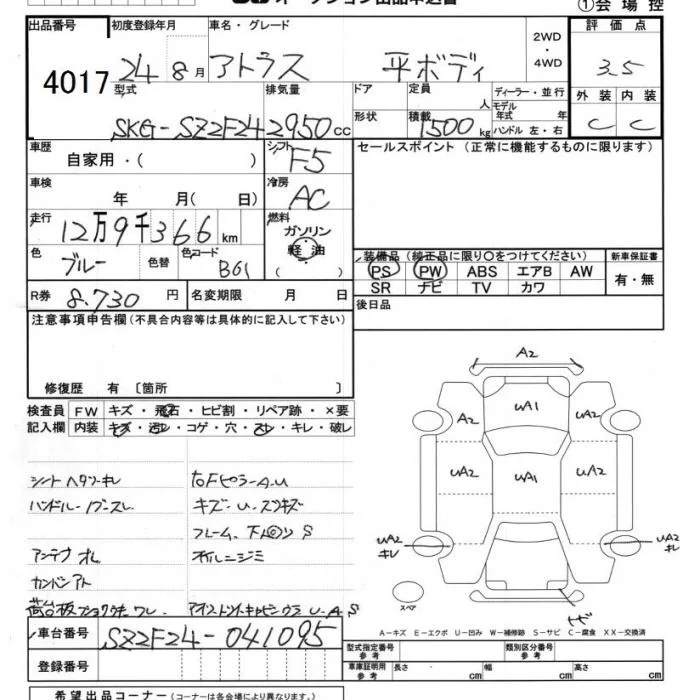 オークション出品申込書 ①会場控
出品番号 初度登録年月 車名・グレード 2WD・4WD 評価点
4017 24年8月 アトラス 平ボディ 3.5
型式 排気量 ドア 定員 人 ディーラー・並行 外装 内装
SKG-SZ2F24 2950cc 形状 積載 1500kg モデル年式 年 ハンドル 左・右 C C
車歴 自家用・( ) シフト F5 セールスポイント (正常に機能するものに限ります)
車検 年 月( 日) 冷房 AC
走行 12万9千366km 燃料 ガソリン 軽油 ( )
色 ブルー 色替 色コード B61 装備品 (純正品に限り○をつけてください) 新車保証書
PS PW ABS エアB AW 有・無
SR ナビ TV カワ
R券 8,730円 名変期限 月 日 後日品
注意事項申告欄 (不具合内容等は具体的に記入して下さい)
修復歴 有 〔箇所 〕
検査員記入欄 FW キズ・飛石・ヒビ割・リペア跡・×要
内装 キズ・汚レ・コゲ・穴・スレ・キレ・破レ
シートヘタリ・キレ
ハンドル・ノブスレ キズ・U・スリキズ
フレーム、下廻り S
アンテナ オレ オイルニジミ
A2
A2 UA1 UA2
UA2 UA1 UA2
UA2 キレ UA2 キレ
スペア
A-キズ E-エクボ U-凹み W-補修跡 S-サビ C-腐食 XX-交換済
車台番号 SZ2F24-041095
登録番号
型式指定番号 参考 類別区分番号 参考
車庫証明用 参考 長さ cm 幅 cm 高さ cm
希望出品コーナー (コーナーは各会場により異なります。)